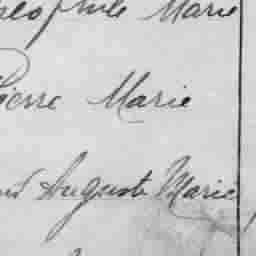 Théophile Marie
Pierre Marie
Auguste Marie